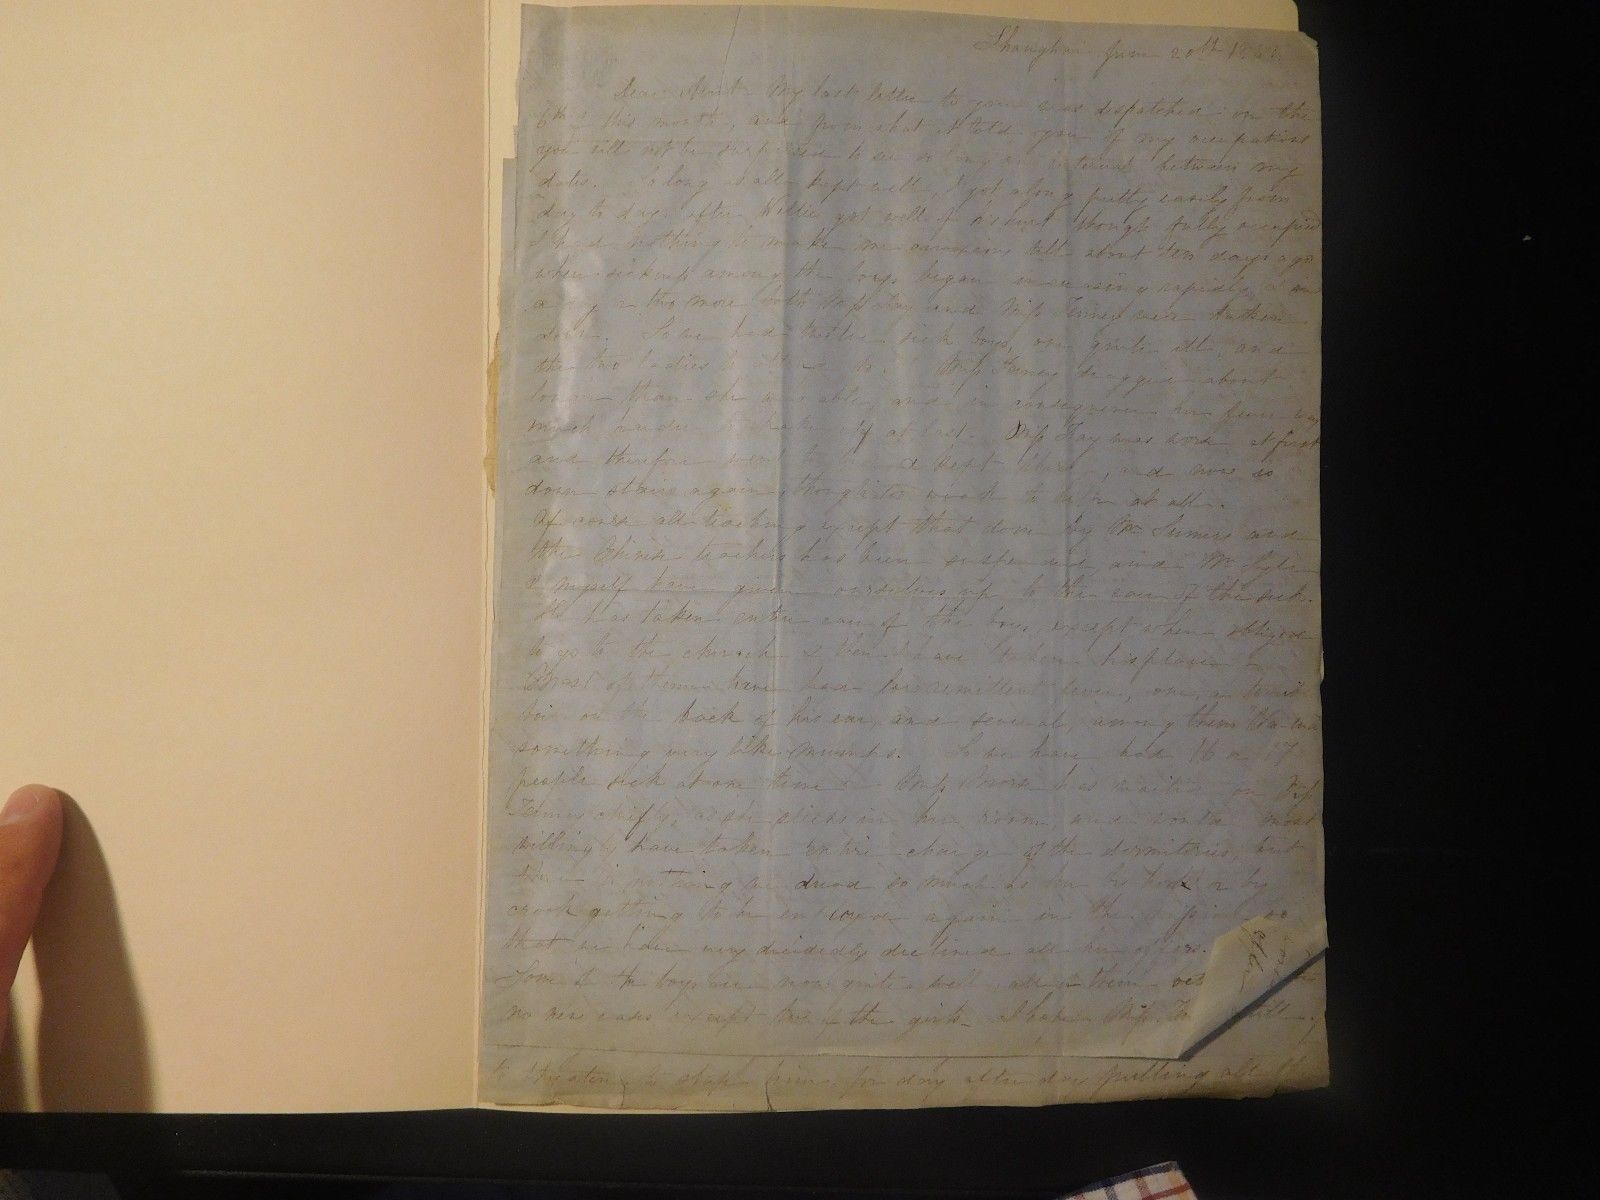 Shanghai June 20th
Dear Aunt My last letter to you was dispatched on the
6th of this month, and from what it told you of my occupations
you will not be surprised to see so long an interval between my
dates. So long as all kept well, I got along pretty easily from
day to day, after Willie got well of his hurt though fully occupied
I had nothing to make me uneasy till about ten days ago
when sickness among the boys began increasing rapidly & in
a day or two more both Miss Fay and Miss Tenney were taken
sick. So we had twelve sick boys, one quite ill, and
the two ladies Miss Tenney dragged about
longer than she was able, and in consequence her fever was
much harder to shake off at last. Miss Fay was worse at first
and therefore went to bed & kept there, and now is
down stairs again, though too weak to at all.
Of course all teaching except that done by Mr and
the Chinese teachers has been suspended, and Mr Syle
& myself have given ourselves up to the care of the sick.
He has taken entire care of the boys, except when obliged
to go to the church & then I have taken his place.
Most of them have had low remittent fever, one, a
boil on the back of his ear, and several, among them
something very like mumps. So we have had 16 or 17
people sick at one time. Miss has waited on Miss
Tenney chiefly, as she sleeps in her room, and would most
willingly have taken entire charge of the dormitories, but
there is nothing we dread so much as her by hook or by
crook getting to be engaged again in the mission, so
that we have very decidedly declined all her offers.
Some of the boys are now quite well, all of them
no new cases except two of the girls. Miss
to stop for day after day putting all